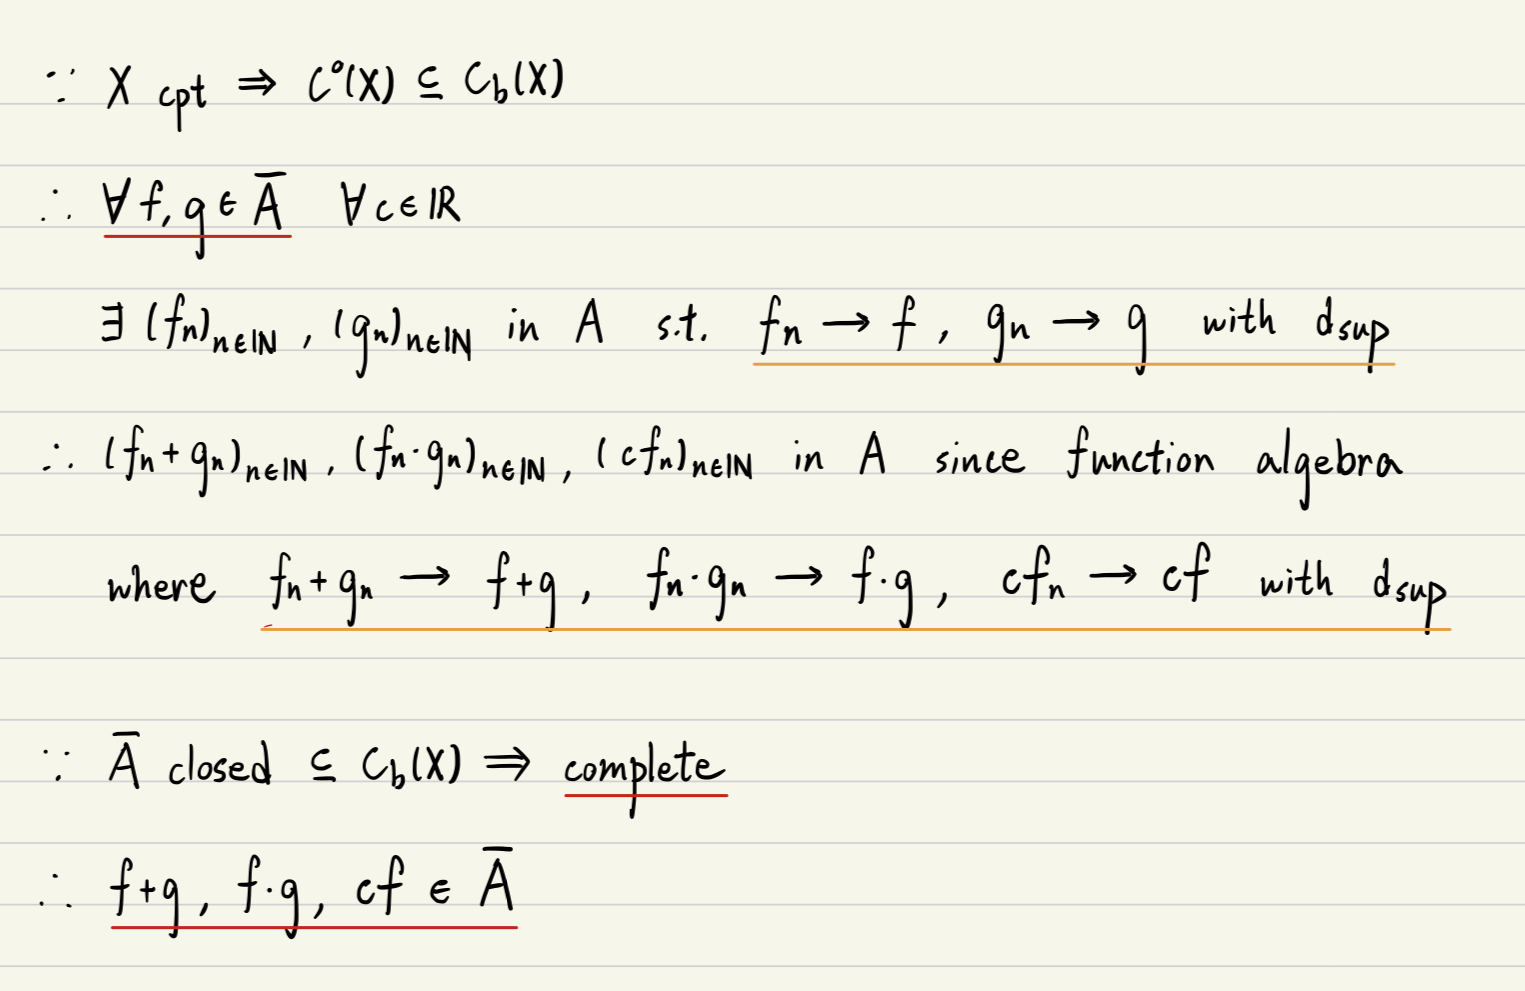 ∵ X cpt ⇒ C⁰(X) ⊆ C_b(X)
∴ ∀ f, g ∈ A̅ ∀ c ∈ ℝ
∃ (fₙ)_{n∈ℕ}, (gₙ)_{n∈ℕ} in A s.t. fₙ → f, gₙ → g with d_sup
∴ (fₙ + gₙ)_{n∈ℕ}, (fₙ · gₙ)_{n∈ℕ}, (cfₙ)_{n∈ℕ} in A since function algebra
where fₙ + gₙ → f + g, fₙ · gₙ → f · g, cfₙ → cf with d_sup
∵ A̅ closed ⊆ C_b(X) ⇒ complete
∴ f + g, f · g, cf ∈ A̅